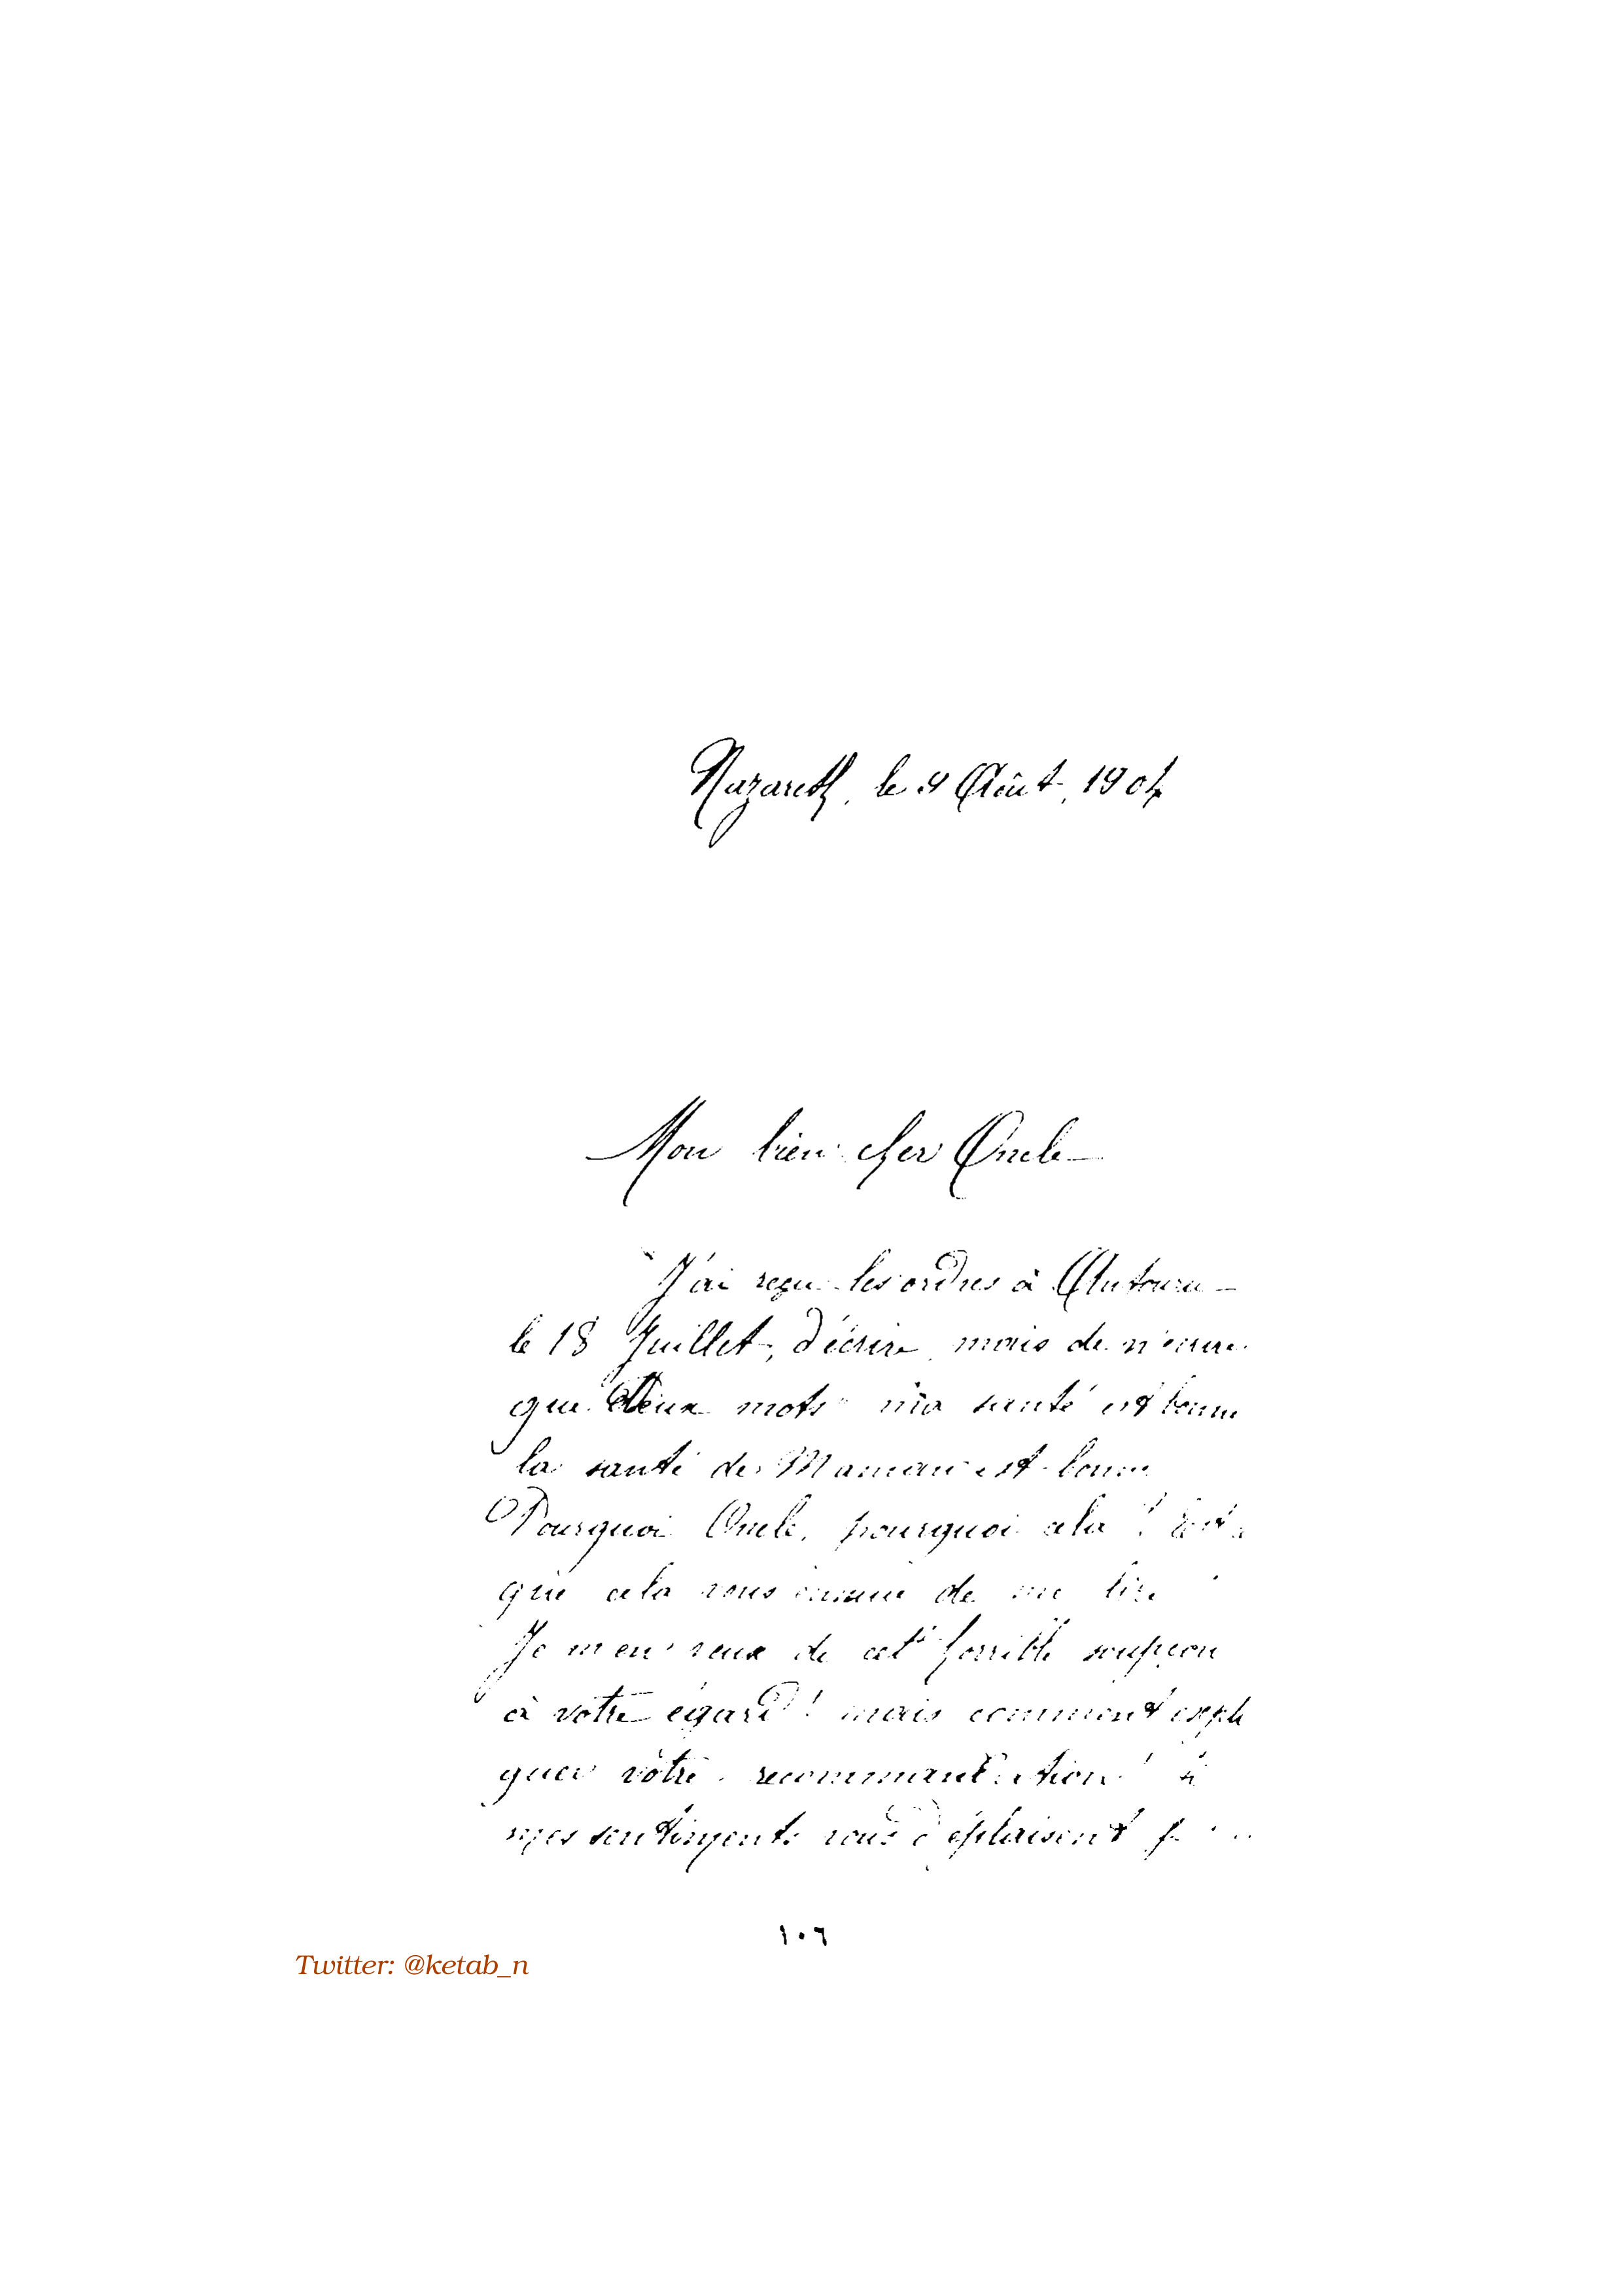 Nazareth, le 9 Août, 1904
Mon bien cher Oncle
J'ai reçu les ordres à Antoura
le 18 Juillet, d'écrire mais de n'écrire
que deux mots ma santé est bonne
la santé de Maman est bonne
Pourquoi Oncle, pourquoi cela !
que cela vous ennuie de me lire
Je m'en veux de cet horrible soupçon
à votre égard ! mais comment expli
quer votre recommandation !
mes sentiments vous déplaisent
١٠٦
Twitter: @ketab_n